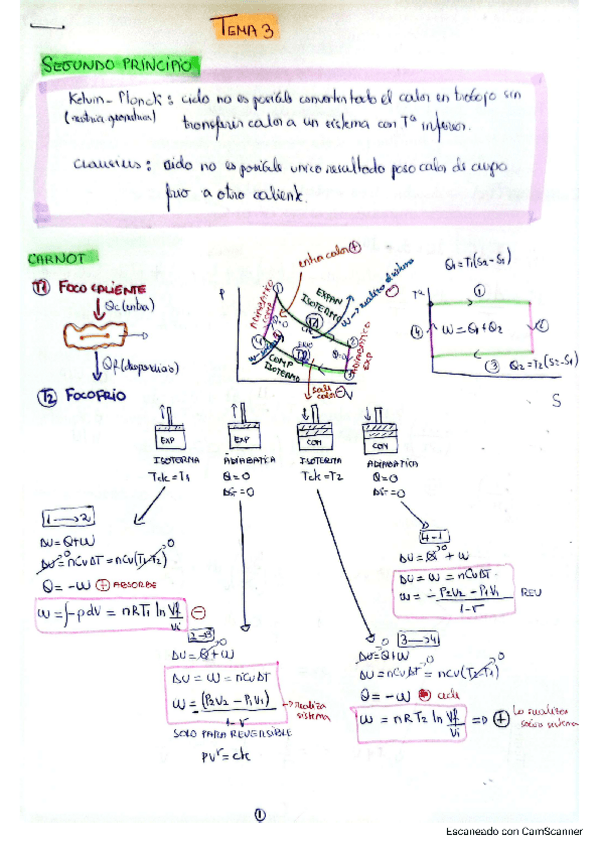 TEMA 3
SEGUNDO PRINCIPIO
Kelvin-Planck: ciclo no es posible convertir todo el calor en trabajo sin
transferir calor a un sistema con Tª inferior.
Clausius: ciclo no es posible unico resultado paso calor de cuerpo
frio a otro caliente.
CARNOT
T1 FOCO CALIENTE
Qc (entra)
Qf (desperdicio)
T2 FOCO FRIO
P
V
entra calor +
EXPAN
ISOTERMO
ADIABATICO
COMP
ISOTERMO
ADIABATICO
EXP
Q=0
sale
calor
Q1 = T1(S2-S1)
Tª
1
W = Q1 + Q2
2
3 Q2 = T2(S2-S1)
4
S
EXP
EXP
COM
COM
ISOTERMA
ADIABATICA
ISOTERMA
ADIABATICA
Tck = T1
Q = 0
Tck = T2
Q = 0
1 → 2
ΔU = Q + W
ΔU = nCvΔT = nCv(T1-T2) 0
Q = -W + ABSORBE
W = ∫-pdV = nRT1 ln Vf/Vi -
2-3
ΔU = Q + W
ΔU = W = nCvΔT
W = (P2V2 - P1V1)/1-r → realiza
sistema
SOLO PARA REVERSIBLE
PVʳ = ck
4-1
ΔU = Q + W
ΔU = W = nCvΔT
W = - P2V2 - P1V1/1-r REV
3 → 4
ΔU = Q + W
ΔU = nCvΔT = nCv(T2-T1) 0
Q = -W cede
W = nRT2 ln Vf/Vi ⇒ + Lo realiza
sobre sistema
1
Escaneado con CamScanner